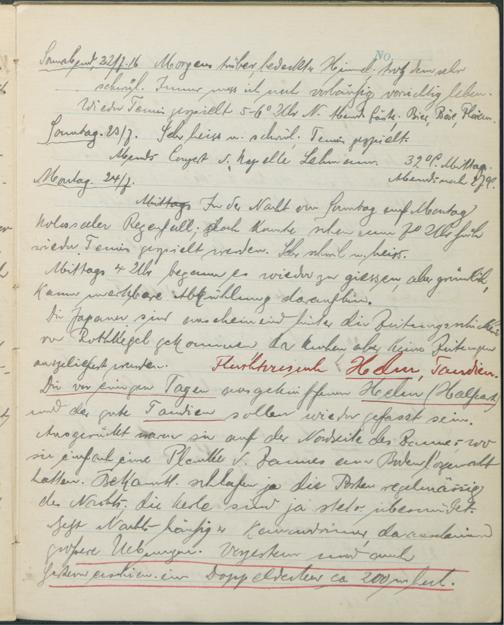 No.
Sonnabend, 22/7.16 Morgens trüber, bedeckter Himmel, trotzdem sehr
schwül. Immer muss ich noch vorläufig vorsichtig leben.
Wieder Tennis gespielt 5-6 Uhr N. Abends Gäste.
Sonntag. 23/7. Sehr heiss u. schwül, Tennis gespielt.
Abends Conzert v. Kapelle Lehmann. 32°C. Mittag.
Montag. 24/7. Abends noch 27°C.
Mittags In der Nacht von Sonntag auf Montag
kolossaler Regenfall; doch konnte schon um 7 Uhr früh
wieder Tennis gespielt werden. Sehr schwül u. heiss.
Mittags 4 Uhr begann es wieder zu giessen, aber gründlich,
kaum merkbare Abkühlung daraufhin.
Die Japaner sind anscheinend hinter die Zeitungs
von Rothkegel gekommen da keine Zeitungen
ausgeliefert wurden. Fluchtversuch Helm, Tandien.
Die vor einigen Tagen ausgekniffenen Helm (Halpaap)
und der gute Tandien sollen wieder gefasst sein.
Ausgerückt waren sie auf der Nordseite des Zaunes, wo
sie einfach eine Planke v. Zaunes am Boden
hatten. Bekanntl. schlafen ja die Posten regelmässig
des Nachts. die Kerle sind ja stets übermüdet.
Jetzt Nachts häufiger
größere Uebungen. Vorgestern und auch
gestern erschien ein Doppeldecker ca 200 m hoch.